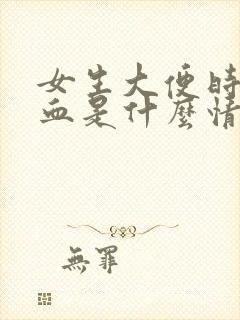 女生大便時
血是什麼情
無罪